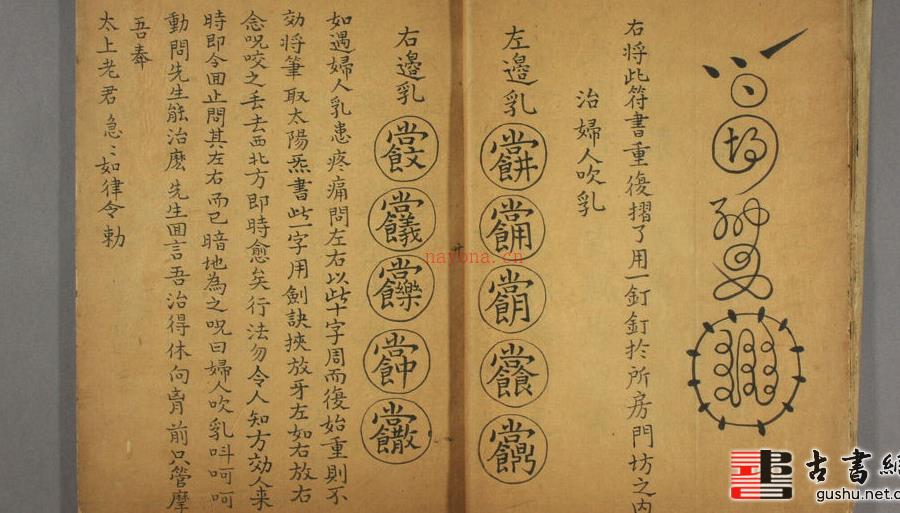 右将此符書重復摺了用一釘釘於所房門坊之内
治婦人吹乳
左邊乳
右邊乳
如遇婦人乳患疼痛問左右以此十字周而復始重則不
効将筆取太陽炁書此一字用劍訣挾放牙左如右放右
念呪咬之丢去西北方即時愈矣行法勿令人知方効人来
時即令囬止問其左右而已暗地為之呪曰婦人吹乳呌呵呵
動問先生能治麽先生囬言吾治得休向胷前只管摩
吾奉
太上老君急〻如律令勅
nayona.cn
古書
gushu.net.cn